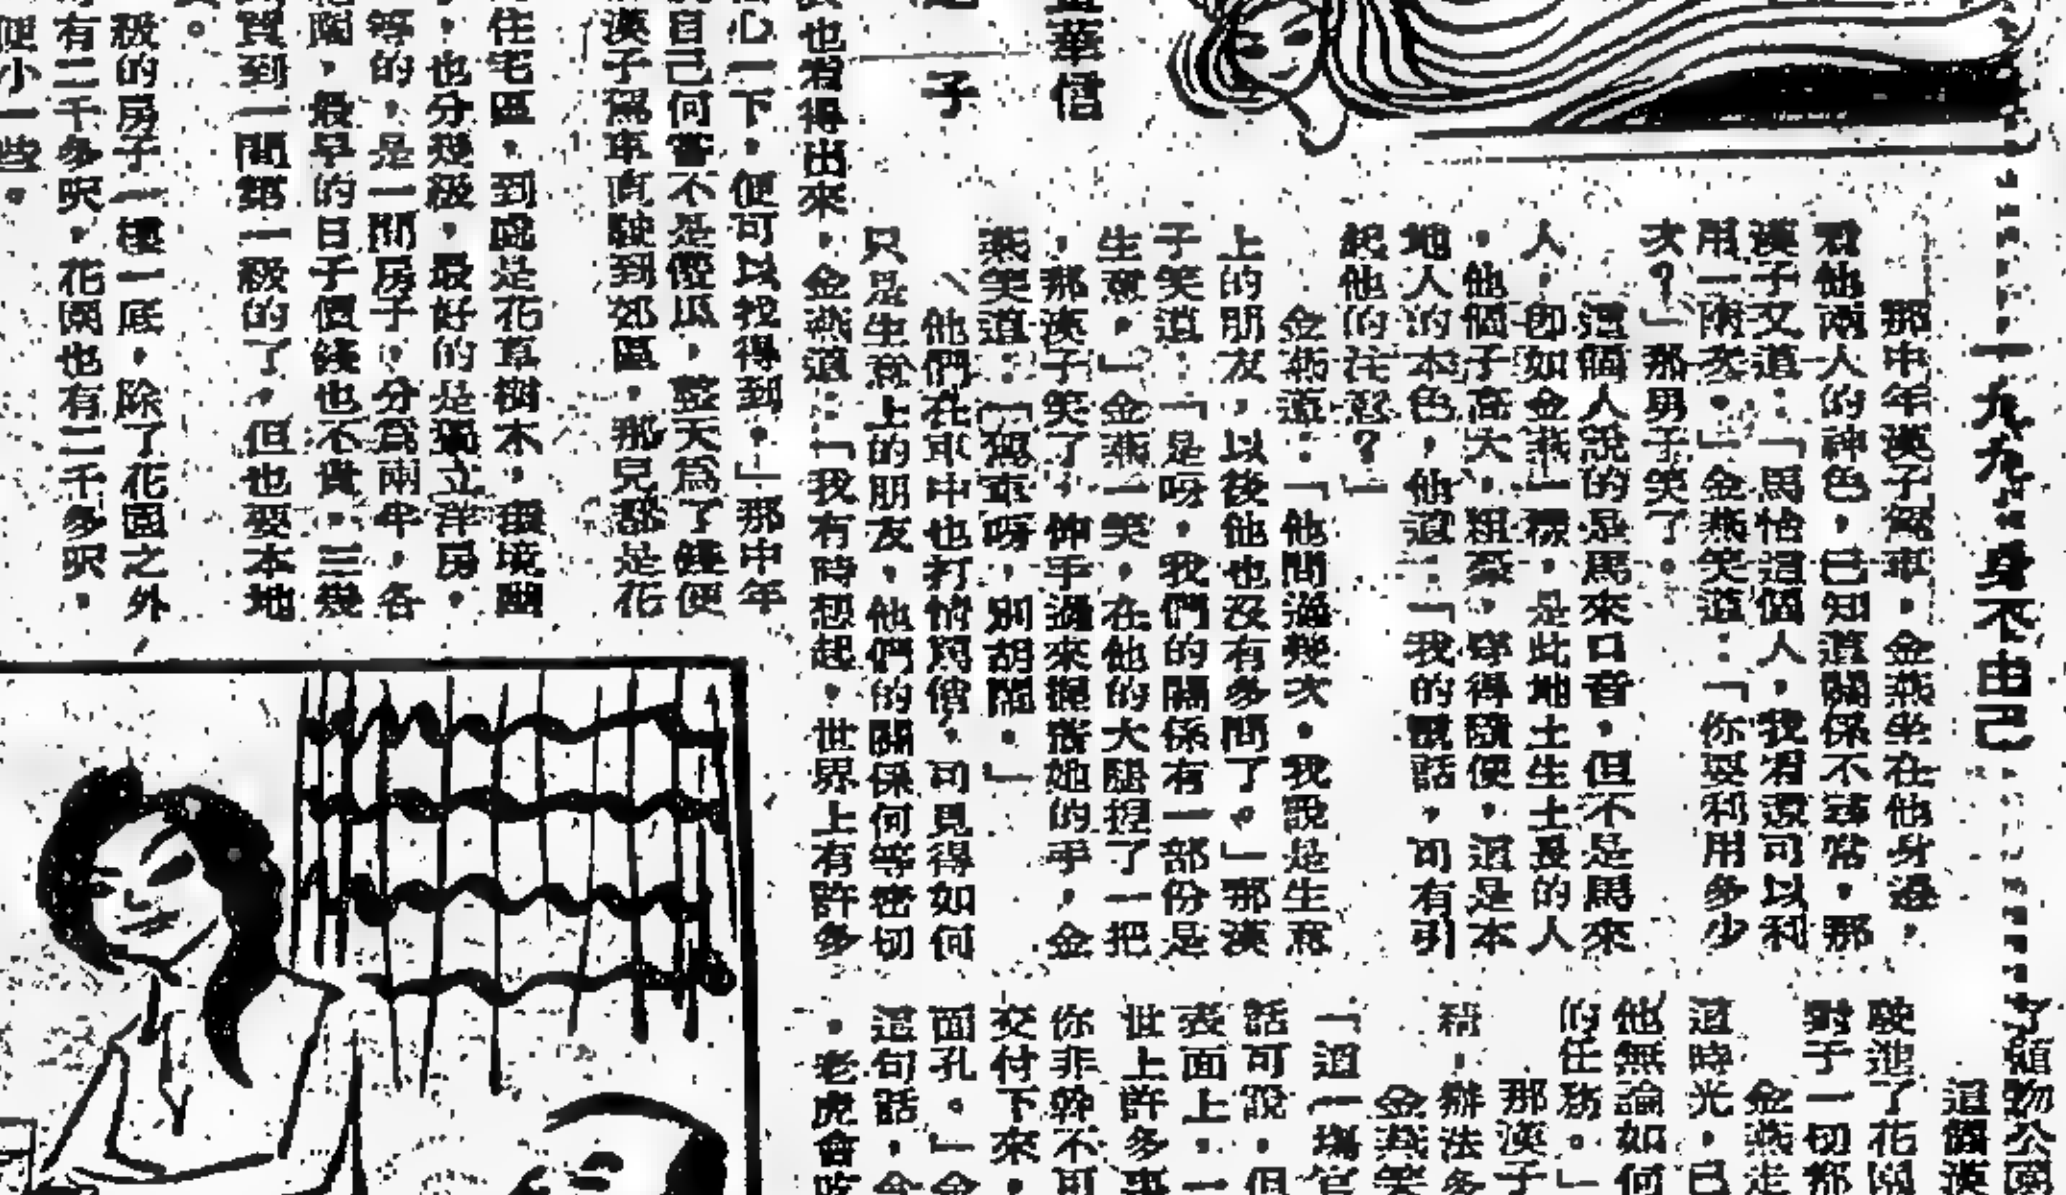 一九九・身不由己
那中年漢子駕車,金燕坐在他身邊,
看他兩人的神色,已知道關係不尋常,那
漢子又道:「馬怡這個人,我看還可以利
用一兩次。」金燕笑道:「你要利用多少
次?」那男子笑了。
這個人說的是馬來口音,但不是馬來
人,即如金燕一樣,是此地土生土長的人
,他個子高大,粗豪,穿得隨便,這是本
地人的本色,他道:「我的電話,可有引
起他的注意?」
金燕道:「他問過幾次,我說是生意
上的朋友,以後他也沒有多問了。」那漢
子笑道:「是呀,我們的關係有一部份是
生意。」金燕一笑,在他的大腿捏了一把
,那漢子笑了,伸手過來握着她的手,金
燕笑道:「駕車呀,別胡鬧。」
他們在車中也打情罵俏,可見得如何
只是生意上的朋友,他們的關係何等密切
,金燕道:「我有時想起,世界上有許多
也看得出來
心一下,便可以找得到。」那中年
自己何嘗不是傻瓜,整天為了錢便
漢子駕車直駛到郊區,那兒都是花
住宅區,到處是花草樹木,環境幽
,也分幾級,最好的是獨立洋房,
等的,是一間房子,分為兩半,各
花園,最早的日子價錢也不貴,三幾
買到一間第一級的了,但也要本地
級的房子一樓一底,除了花園之外
有二千多呎,花園也有二千多呎,
便小一些。
子
華信
了植物公園
這個漢
駛進了花園
對于一切都
金燕走
這時光,已
他無論如何
的任務。」
那漢子
辦法多
金燕笑
「這一場官
話可說,但
表面上,一
世上許多事
你非幹不可
交付下來,
面孔。」金
這句話,令
,老虎會吃